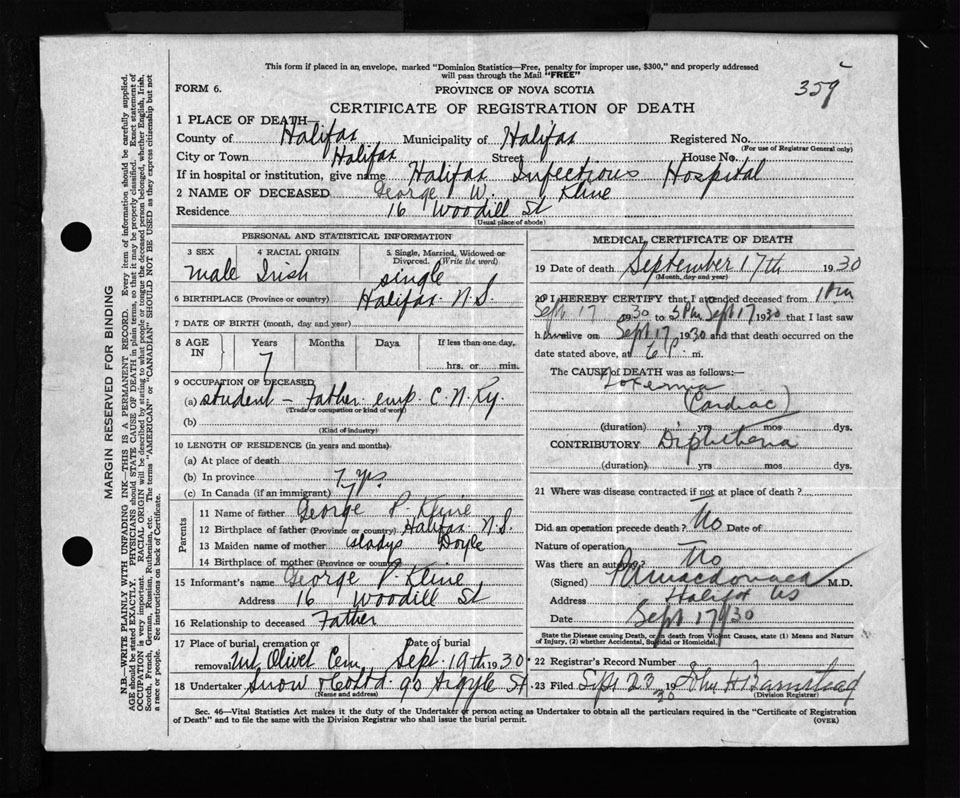 This form if placed in an envelope, marked "Dominion Statistics—Free, penalty for improper use, $300," and properly addressed
will pass through the Mail "FREE"
359
FORM 6.
PROVINCE OF NOVA SCOTIA
CERTIFICATE OF REGISTRATION OF DEATH
1 PLACE OF DEATH—
County of Halifax Municipality of Halifax Registered No.
(For use of Registrar General only)
City or Town Halifax Street House No.
If in hospital or institution, give name Halifax Infectious Hospital
2 NAME OF DECEASED George W. Kline
Residence 16 Woodill St
(Usual place of abode)
PERSONAL AND STATISTICAL INFORMATION
3 SEX 4 RACIAL ORIGIN 5 Single, Married, Widowed or
Divorced. (Write the word)
male Irish single
6 BIRTHPLACE (Province or country) Halifax N.S.
7 DATE OF BIRTH (month, day, and year)
8 AGE IN Years Months Days If less than one day,
7 hrs. or min.
9 OCCUPATION OF DECEASED
(a) student – Father emp C.N.Ry
(Trade or occupation or kind of work)
(b)
(Kind of industry)
10 LENGTH OF RESIDENCE (in years and months)
(a) At place of death
(b) In province 7 yrs.
(c) In Canada (if an immigrant)
Parents
11 Name of father George P. Kline
12 Birthplace of father (Province or country) Halifax N.S.
13 Maiden name of mother Gladys Doyle
14 Birthplace of mother (Province or country)
15 Informant's name George P. Kline
Address 16 Woodill St
16 Relationship to deceased Father
17 Place of burial, cremation or Date of burial
removal Mt Olivet Cem Sept. 19th 1930
18 Undertaker Snow & Co Ltd. 90 Argyle St
(Name and address)
MEDICAL CERTIFICATE OF DEATH
19 Date of death September 17th 1930
(Month, day and year)
20 I HEREBY CERTIFY that I attended deceased from 1 Pm
Sept 17 1930 to 3 Pm Sept 17 1930 that I last saw
h alive on Sept 17 1930 and that death occurred on the
date stated above, at 6 P. m.
The CAUSE of DEATH was as follows:—
Toxemia
(Cardiac)
(duration) yrs mos dys.
CONTRIBUTORY Diphtheria
(duration) yrs mos dys.
21 Where was disease contracted if not at place of death?
Did an operation precede death? No Date of
Nature of operation
Was there an autopsy? No
(Signed) Macdonald M.D.
Address Halifax NS
Date Sept 17/30
State the Disease causing Death, or, in death from Violent Causes, state (1) Means and Nature
of Injury, (2) whether Accidental, Suicidal or Homicidal.
22 Registrar's Record Number
23 Filed Sept 23 1930 John H Barnstead
(Division Registrar)
Sec. 46—Vital Statistics Act makes it the duty of the Undertaker or person acting as Undertaker to obtain all the particulars required in the "Certificate of Registration
of Death" and to file the same with the Division Registrar who shall issue the burial permit.
(OVER)
MARGIN RESERVED FOR BINDING
N.B.—WRITE PLAINLY WITH UNFADING INK—THIS IS A PERMANENT RECORD. Every item of information should be carefully supplied.
AGE should be stated EXACTLY. PHYSICIANS should STATE CAUSE OF DEATH in plain terms, so that it may be properly classified. Exact statement of
OCCUPATION is very important. RACIAL ORIGIN will be described by stating to what people or tongue the deceased person belonged, whether English, Irish,
Scotch, French, German, Russian, Ruthenian, etc. The terms "AMERICAN" or "CANADIAN" SHOULD NOT BE USED as they express citizenship but not
a race or people. See instructions on back of Certificate.